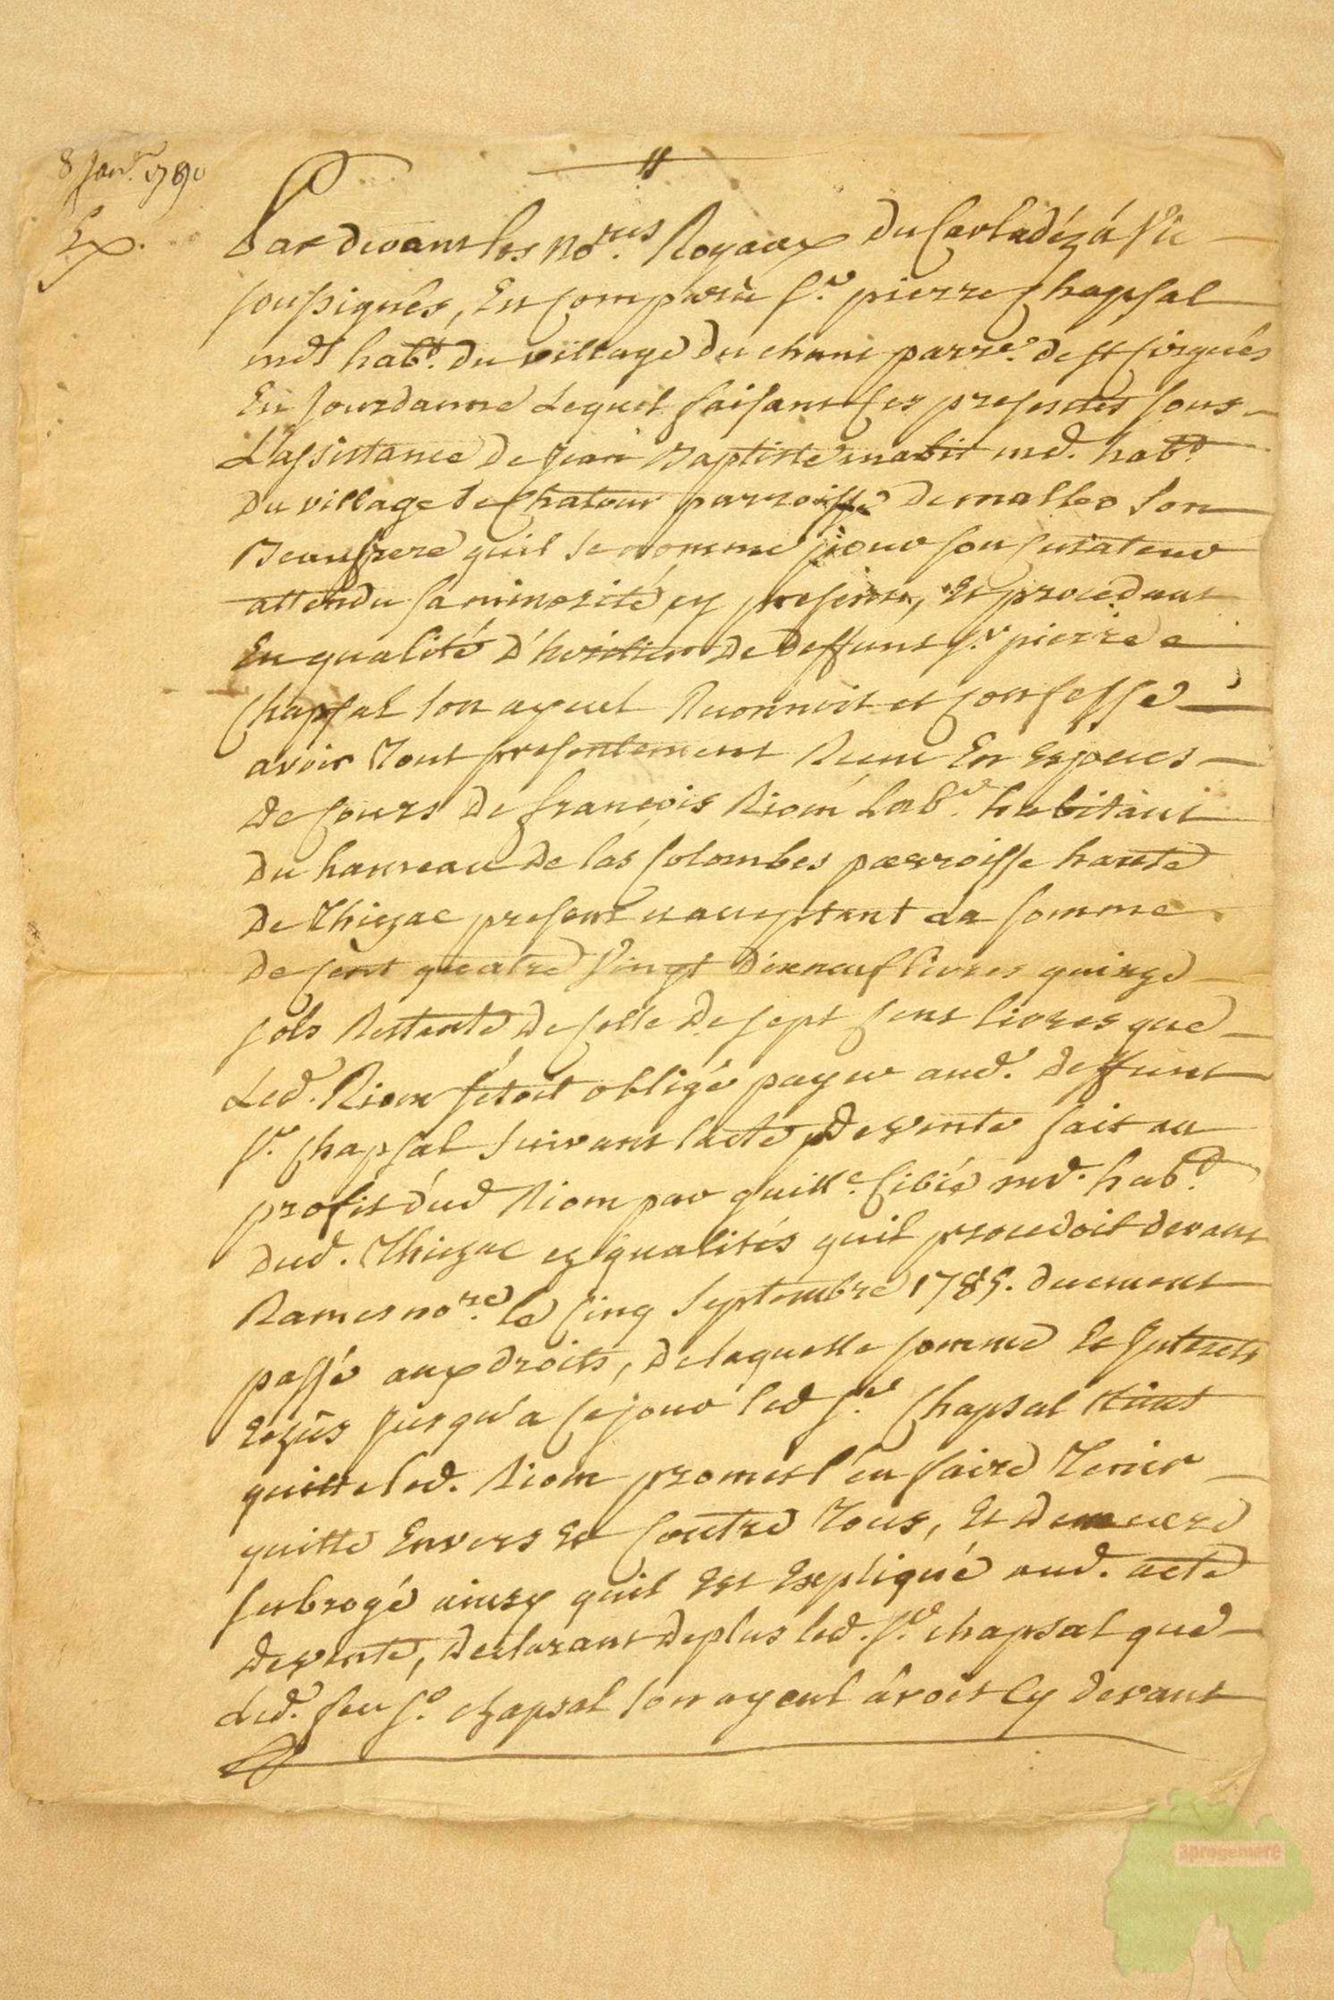 8 Janr. 1790
Ex.
Par devant les nores. Royaux du Carladéz á Vic
soussignés, En comparu Sr. pierre Chapsal
md habt. du village du chant parrse. de st Cirgués
En Jourdanne Lequel faisant Ces presentes sous
L'assistance de Jean Baptiste mabit md. habt
Du village de Chatour parroisse de mallet son
Beaufrere quil se nomme pour son Curateur
attendu sa minorité, cy present, Et procedant
En qualité d'heritier de deffunt Sr. pierre
Chapsal son ayeul Reconnoit et Confesse
avoir Tout presentement Receu En Especes
de Cours de françois Riom Labr. habitant
Du hameau de las Colombes parroisse haute
De Thiezac present et acceptant La somme
De Cent quatre Vingt Dixneuf livres quinze
sols Restante de Celle De sept Cent livres que
Led. Riom s'étoit obligé payer aud. deffunt
Sr. Chapsal suivant lacte de vente fait au
profit dud Riom par guille. Cibié md. habt.
Dud. Thiezac ez qualités quil procedoit devant
Rames nore. le Cinq Septembre 1785. duement
passé aux droits, de laquelle somme Et Interets
Echus Jusqu'a Ce jour led Sr. Chapsal tient
quitte led. Riom promet l'en faire Tenir
quitte Envers Et Contre Tous, Et demeure
subrogé ainsy quil Est Expliqué aud. acte
de vente, declarant deplus led. Sr. Chapsal que
Led. feu Sr. Chapsal son ayeul avoit Cy devant
aprogemere